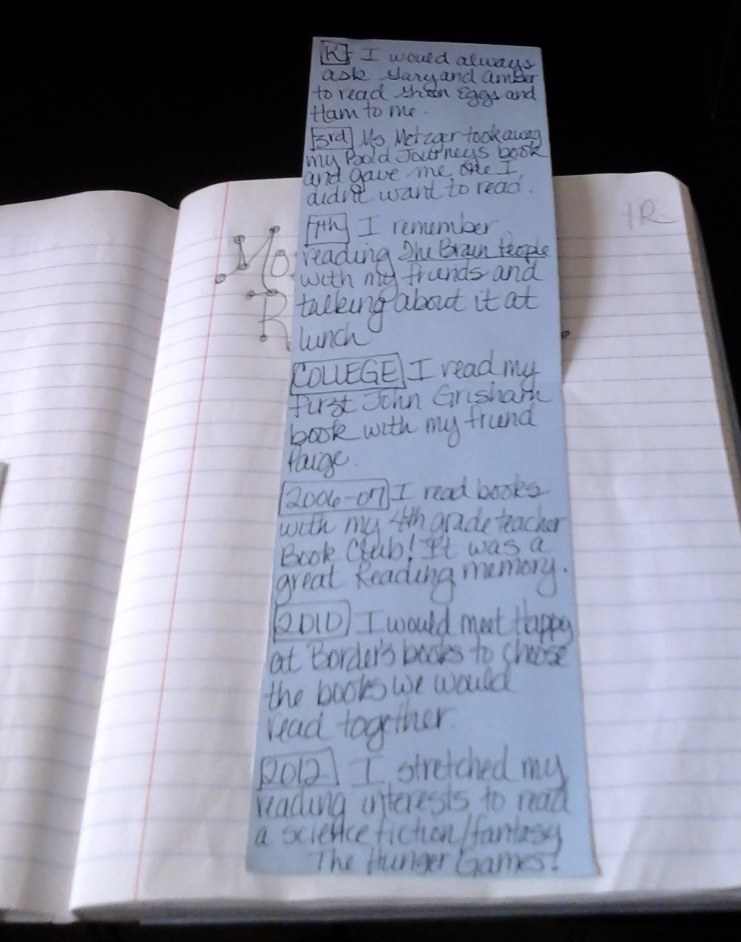 K I would always
ask Gary and Amber
to read Green Eggs and
Ham to me.
3rd Ms. Metzger took away
my Bold Journeys book
and gave me one I
didn't want to read.
7th I remember
reading The Brain People
with my friends and
talking about it at
lunch
COLLEGE I read my
first John Grisham
book with my friend
Paige.
2006-07 I read books
with my 4th grade teacher
Book Club! It was a
great Reading memory.
2010 I would meet Happy
at Border's books to choose
the books we would
read together.
2012 I stretched my
reading interests to read
a science fiction/fantasy
The Hunger Games!
1R
Mo
R